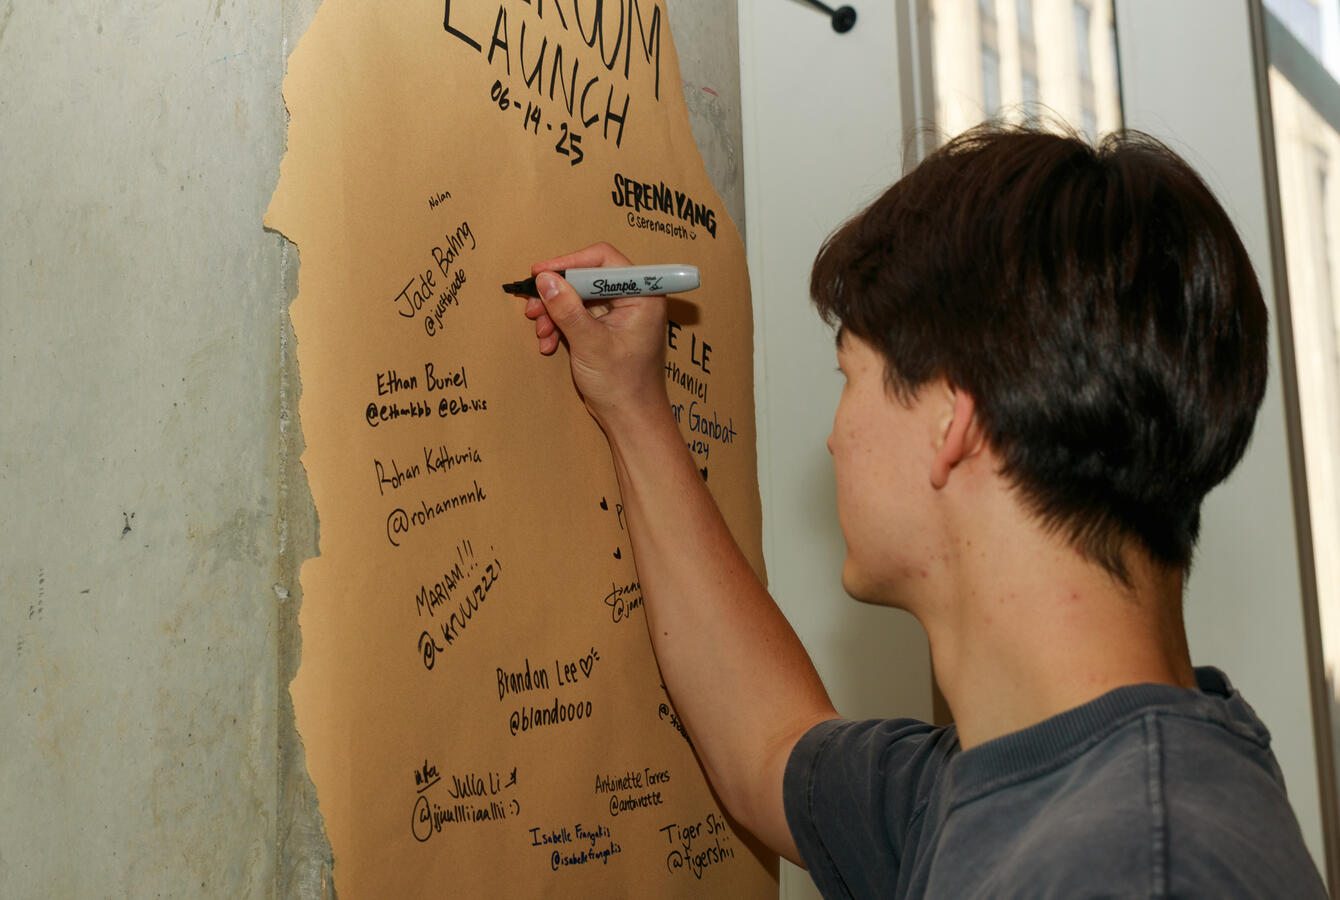 LAUNCH
06-14-25
Nolan
SERENA YANG
@serenasloth
Jade Bahng
@justbjade
Sharpie
E LE
Ethan Buriel
@ethankbb @eb.vis
thaniel
ar Ganbat
Rohan Kathuria
@rohannnnk
MARIAM!!!
@kruuuzzzi
Brandon Lee
@blandoooo
Julia Li
@jjuullliiaallii :)
Antoinette Torres
@antoinette
Isabelle Frangakis
@isabellefrangakis
Tiger Shi
@tigershii